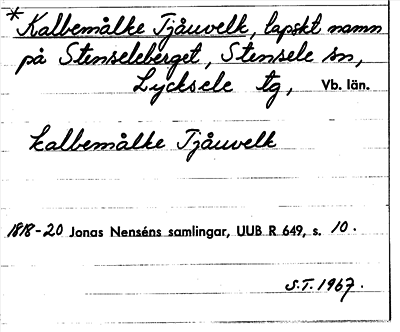 * Kalbemålke Tjåuvelk, lapskt namn
på Stenseleberget, Stensele sn,
Lycksele tg, Vb. län.
kalbemålke Tjåuvelk
1818-20 Jonas Nenséns samlingar, UUB R 649, s. 10.
S.T. 1967.